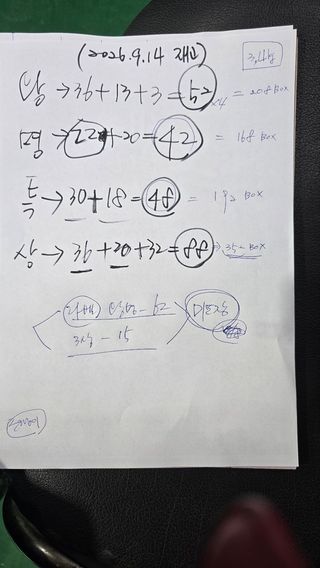 (2026.9.14 재고)
3,4번
왕 → 36+13+3=52 ×4 = 208 BOX
명 → 22+20=42 = 168 BOX
특 → 30+18=48 = 192 BOX
상 → 36+20+32=88 → 35- BOX
3상 - 15